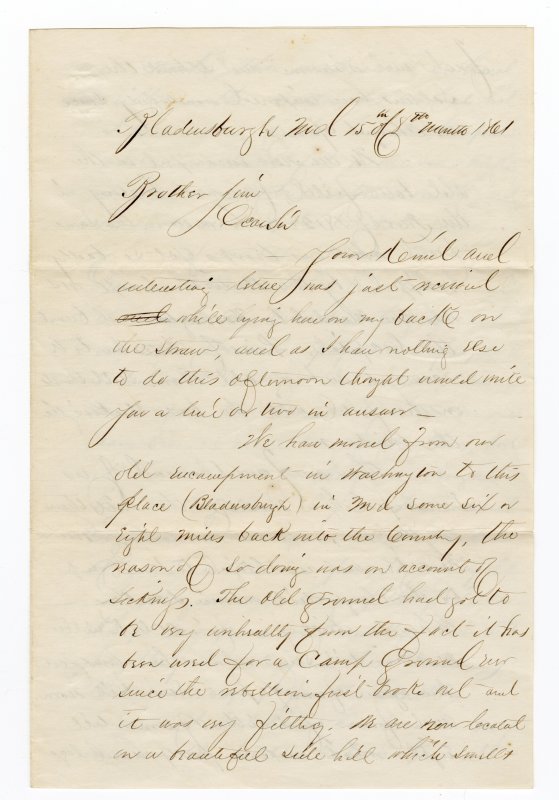 Bladensburgh Md 15th of 8th Month 1861
Brother Jim
Dear Sir
Your Kind and
interesting letter was just received
and while lying here on my back on
the straw, and as I have nothing else
to do this afternoon thought would write
you a line or two in answer —
We have moved from our
old encampment in Washington to this
place (Bladensburgh) in Md some six or
Eight miles back into the Country, the
reason of so doing was on account of
sickness. The old ground had got to
be very unhealthy from the fact it has
been used for a Camp Ground ever
since the rebellion first broke out and
it was very filthy. We are now located
on a beautiful side hill which smells